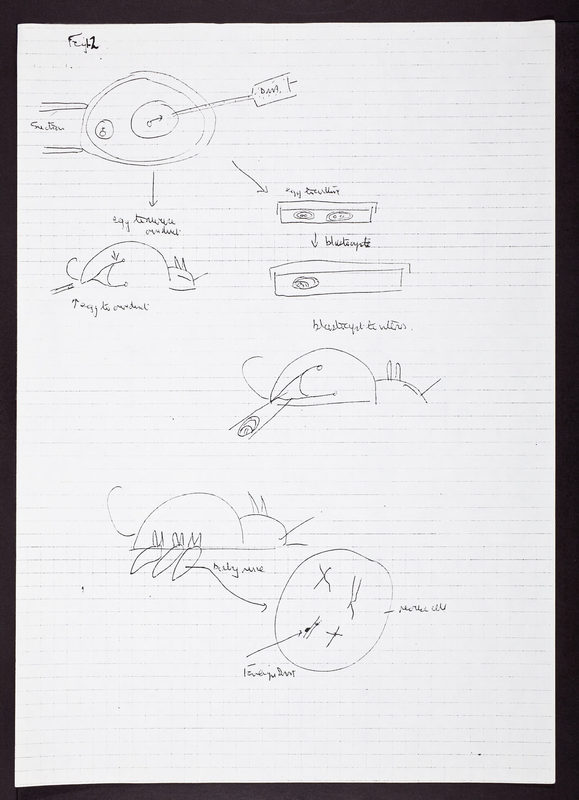 Fig 2
DNA
Suction
egg to culture
egg to mouse
oviduct
blastocyst
↑ egg to oviduct
blastocyst to uterus.
baby mice
mouse cell
Foreign DNA